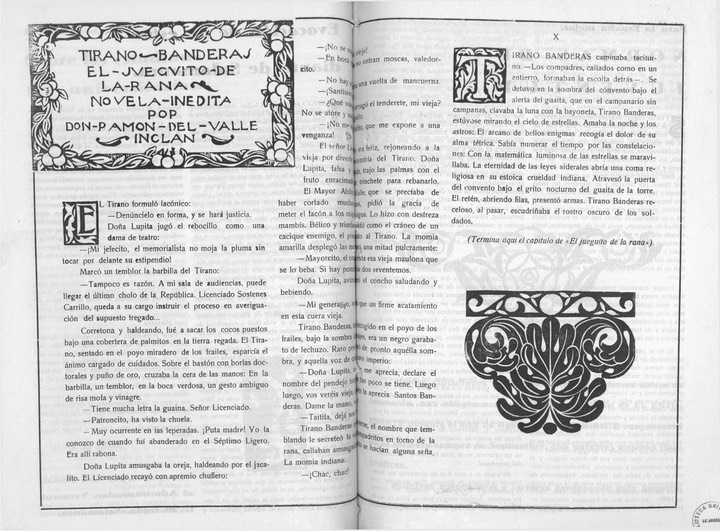 TIRANO BANDERAS
EL-JVEGVITO-DE
LA-RANA
NOVELA-INEDITA
POP
DON-PAMON-DEL-VALLE
INCLAN
EL Tirano formuló lacónico:
—Denúncielo en forma, y se hará justicia.
Doña Lupita jugó el rebocillo como una
dama de teatro:
—¡Mi jefecito, el memorialista no moja la pluma sin
tocar por delante su estipendio!
Marcó un temblor la barbilla del Tirano:
—Tampoco es razón. A mi sala de audiencias, puede
llegar el último cholo de la República. Licenciado Sostenes
Carrillo, queda a su cargo instruir el proceso en averigua-
ción del supuesto fregado...
Corretona y haldeando, fué a sacar los cocos puestos
bajo una cobertera de palmitos en la tierra regada. El Tira-
no, sentado en el poyo miradero de los frailes, esparcía el
ánimo cargado de cuidados. Sobre el bastón con borlas doc-
torales y puño de oro, cruzaba la cera de las manos: En la
barbilla, un temblor, en la boca verdosa, un gesto ambiguo
de risa mofa y vinagre.
—Tiene mucha letra la guaina, Señor Licenciado.
—Patroncito, ha visto la chuela.
—Muy ocurrente en las leperadas. ¡Puta madre! Yo la
conozco de cuando fuí abanderado en el Séptimo Ligero.
Era allí rabona.
Doña Lupita amusgaba la oreja, haldeando por el jaca-
lito. El Licenciado recayó con apremio chuflero:
—¡No se vieja!
—En boca no entran moscas, valedor-
cito.
—No hay una vuelta de mancuerna.
—¡Santísi
—¿Qué el tenderete, mi vieja?
No se atore y
—¡No me que me expone a una
venganza!
El señor feliz, rejoneando a la
vieja por diverti del Tirano. Doña
Lupita, falsa trajo las palmas con el
fruto enracimad trinchete para rebanarlo.
El Mayor Abil que se preciaba de
haber cortado much pidió la gracia de
meter el facón a los coc Lo hizo con destreza
mambís. Bélico y triun como el cráneo de un
cacique enemigo, el p al Tirano. La momia
amarilla desplegó las man una mitad pulcramente:
—Mayorcito, el con esa vieja maulona que
se lo beba. Si hay pon los dos seventemos.
Doña Lupita, avin el concho saludando y
bebiendo.
—Mi general que un firme acatamiento
en esta cuera vieja.
Tirano Banderas, recogido en el poyo de los
frailes, bajo la sombra era un negro garaba-
to de lechuzo. Raro de pronto aquélla som-
bra, y aquella voz de
—Doña Lupita, me aprecia, declare el
nombre del pendejo poco se tiene. Luego
luego, vos veréis viej la aprecia Santos Ban-
deras. Dame la mano,
—Taitita, dejá
Tirano Banderas el nombre que tem-
blando le secreteó la en torno de la
rana, callaban amusga se hacían alguna seña.
La momia indiana:
—¡Chac, chac!
X
TIRANO BANDERAS caminaba tacitur-
no. —Los compadres, callados como en un
entierro, formaban la escolta detrás—. Se
detuvo en la sombra del convento bajo el
alerta del guaita, que en el campanario sin
campanas, clavaba la luna con la bayoneta, Tirano Banderas,
estúvose mirando el cielo de estrellas. Amaba la noche y los
astros: El arcano de bellos enigmas recogía el dolor de su
alma tétrica. Sabía numerar el tiempo por las constelacio-
nes: Con la matemática luminosa de las estrellas se maravi-
llaba. La eternidad de las leyes siderales abría una coma re-
ligiosa en su estoica crueldad indiana. Atravesó la puerta
del convento bajo el grito nocturno del guaita de la torre.
El retén, abriendo filas, presentó armas. Tirano Banderas re-
celoso, al pasar, escudriñaba el rostro oscuro de los sol-
dados.
(Termina aquí el capítulo de «El jueguito de la rana»).